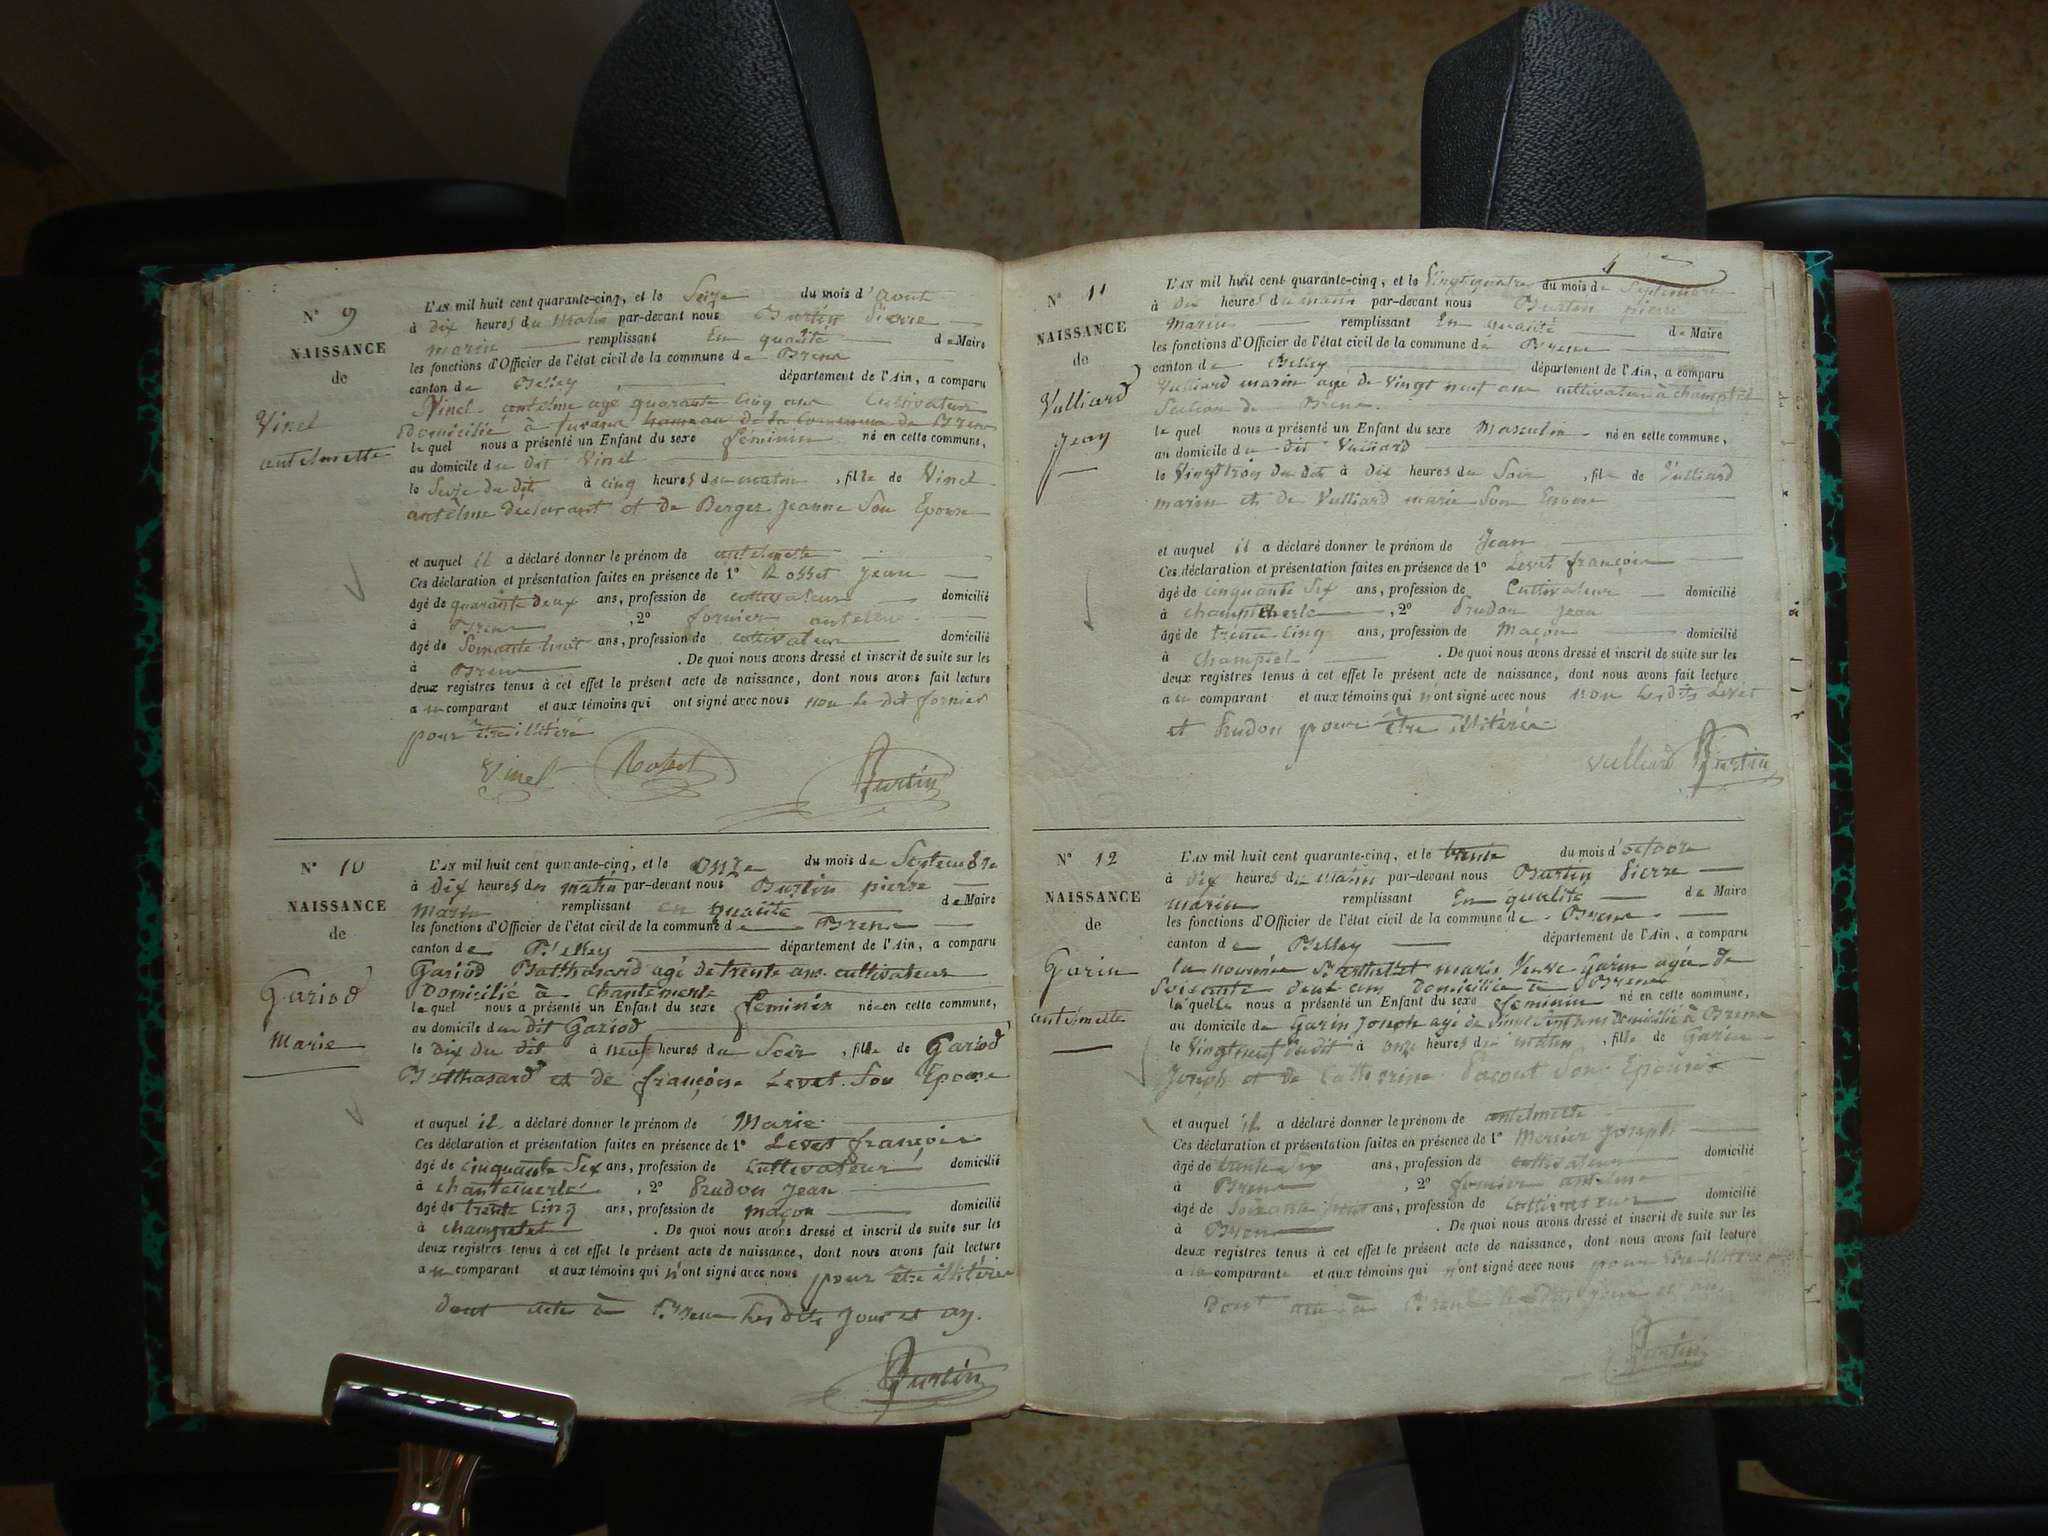 N° 9
NAISSANCE
de
Vinel
antelmette
L'AN mil huit cent quarante-cinq, et le Seize du mois d'aout
à dix heures du matin par-devant nous Burtin Pierre
marin remplissant En qualité de Maire
les fonctions d'Officier de l'état civil de la commune de Brens
canton de Belley département de l'Ain, a comparu
Vinel antelme agé quarante Cinq ans Cultivateur
Domicilié à hameau de la Commune de Brens
le quel nous a présenté un Enfant du sexe féminin né en cette commune,
au domicile du dit Vinel
le Seize du dit à cinq heures du matin, fille de Vinel
antelme declarant et de Berger Jeanne Son Epouse
et auquel il a déclaré donner le prénom de antelmette
Ces déclaration et présentation faites en présence de 1° Rosset Jean
âgé de quarante deux ans, profession de cultivateur domicilié
à Brens, 2° fornier antelme
âgé de Soixante huit ans, profession de cultivateur domicilié
à Brens. De quoi nous avons dressé et inscrit de suite sur les
deux registres tenus à cet effet le présent acte de naissance, dont nous avons fait lecture
au comparant et aux témoins qui ont signé avec nous non le dit fornier
pour être illitéré
Vinel Rosset Burtin
N° 10
NAISSANCE
de
Gariod
Marie
L'AN mil huit cent quarante-cinq, et le onze du mois de Septembre
à Dix heures du matin par-devant nous Burtin pierre
Marin remplissant en qualité de Maire
les fonctions d'Officier de l'état civil de la commune de Brens
canton de Belley département de l'Ain, a comparu
Gariod Balthasard agé de trente ans cultivateur
Domicilié à chantemerle
le quel nous a présenté un Enfant du sexe féminin née en cette commune,
au domicile du dit Gariod
le dix du dit à neuf heures du Soir, fille de Gariod
Balthasard et de françoise Levet Son Epouse
et auquel il a déclaré donner le prénom de Marie
Ces déclaration et présentation faites en présence de 1° Levet françois
âgé de cinquante Six ans, profession de cultivateur domicilié
à chantemerle, 2° Prudon Jean
âgé de trente Cinq ans, profession de maçon domicilié
à champtel. De quoi nous avons dressé et inscrit de suite sur les
deux registres tenus à cet effet le présent acte de naissance, dont nous avons fait lecture
au comparant et aux témoins qui n'ont signé avec nous pour être illitérés
Dont acte à Brens les dits jour et an.
Burtin
4
N° 11
NAISSANCE
de
Vulliard
Jean
L'AN mil huit cent quarante-cinq, et le Vingt quatre du mois de Septembre
à dix heures du matin par-devant nous Burtin pierre
Marin remplissant En qualité de Maire
les fonctions d'Officier de l'état civil de la commune de Brens
canton de Belley département de l'Ain, a comparu
Vulliard marin agé de Vingt neuf ans cultivateur à champtel
Section de Brens.
le quel nous a présenté un Enfant du sexe Masculin né en cette commune,
au domicile du dit Vulliard
le Vingt trois du dit à dix heures du Soir, fils de Vulliard
marin et de Vulliard marie Son Epouse
et auquel il a déclaré donner le prénom de Jean
Ces déclaration et présentation faites en présence de 1° Levet françois
âgé de cinquante Six ans, profession de Cultivateur domicilié
à, 2° Prudon Jean
âgé de trente Cinq ans, profession de Maçon domicilié
à champtel. De quoi nous avons dressé et inscrit de suite sur les
deux registres tenus à cet effet le présent acte de naissance, dont nous avons fait lecture
au comparant et aux témoins qui n'ont signé avec nous non les dits Levet
et Prudon pour être illitérés
Vulliard Burtin
N° 12
NAISSANCE
de
Garin
antelmette
L'AN mil huit cent quarante-cinq, et le trente du mois d'octobre
à Dix heures du matin par-devant nous Burtin Pierre
marin remplissant En qualité de Maire
les fonctions d'Officier de l'état civil de la commune de Brens
canton de Belley département de l'Ain, a comparu
la nommée marie Veuve Garin agée de
Soixante deux ans Domiciliée à Brens
laquelle nous a présenté un Enfant du sexe féminin né en cette commune,
au domicile de Garin Joseph agé de vingt ans Domicilié à Brens
le Vingt neuf dudit à onze heures du matin, fille de Garin
Joseph et de Catherine Pacout Son Epouse
et auquel il a déclaré donner le prénom de antelmette
Ces déclaration et présentation faites en présence de 1° Mercier Joseph
âgé de trente Six ans, profession de cultivateur domicilié
à Brens, 2° fornier antelme
âgé de Soixante huit ans, profession de Cultivateur domicilié
à Brens. De quoi nous avons dressé et inscrit de suite sur les
deux registres tenus à cet effet le présent acte de naissance, dont nous avons fait lecture
a la comparante et aux témoins qui n'ont signé avec nous pour être
Dont acte à Brens les dits jour et an.
Burtin